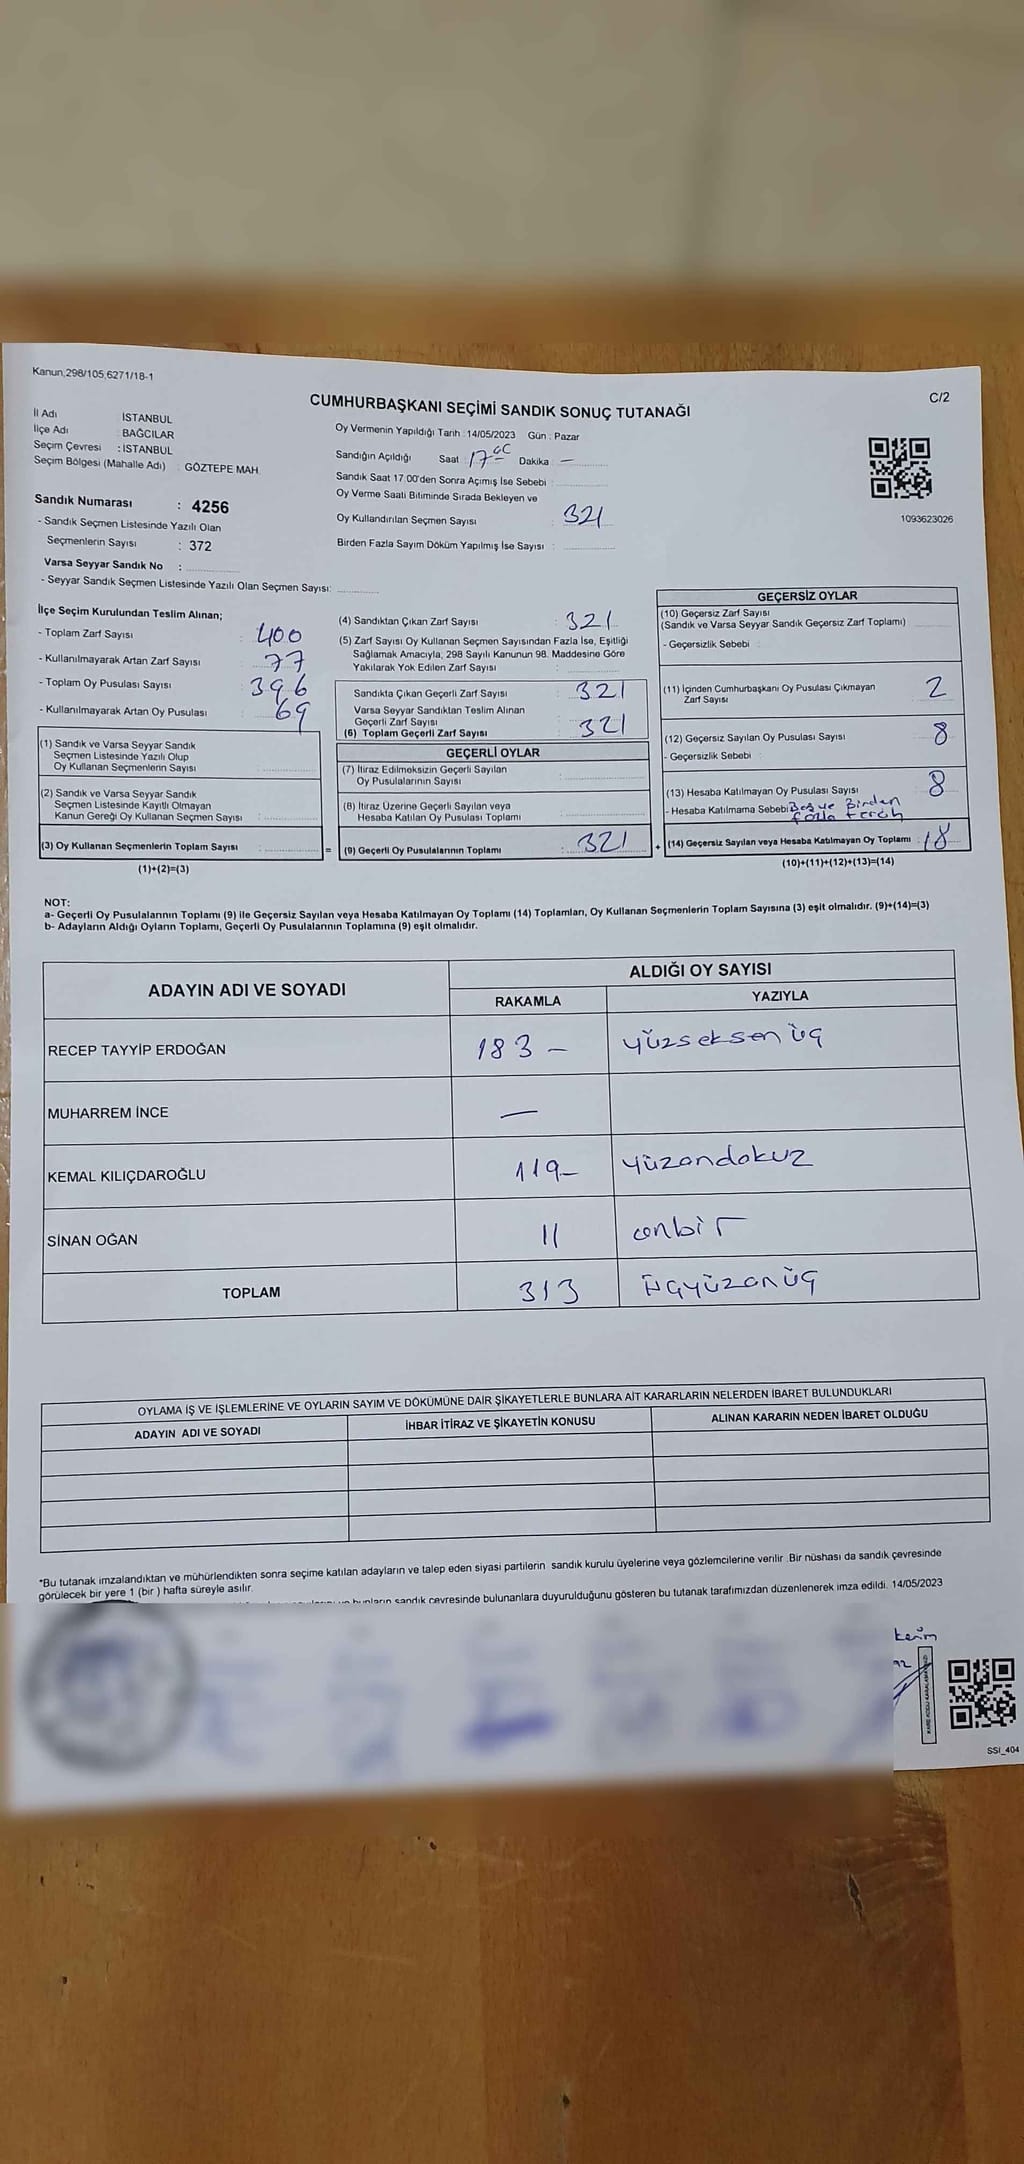 Kanun,298/105,6271/18-1
C/2
CUMHURBAŞKANI SEÇİMİ SANDIK SONUÇ TUTANAĞI
İl Adı İSTANBUL
İlçe Adı BAĞCILAR
Seçim Çevresi : İSTANBUL
Seçim Bölgesi (Mahalle Adı) GÖZTEPE MAH.
Sandık Numarası : 4256
- Sandık Seçmen Listesinde Yazılı Olan
Seçmenlerin Sayısı : 372
Varsa Seyyar Sandık No :
- Seyyar Sandık Seçmen Listesinde Yazılı Olan Seçmen Sayısı:
Oy Vermenin Yapıldığı Tarih : 14/05/2023 Gün : Pazar
Sandığın Açıldığı Saat : 17 Dakika : —
Sandık Saat 17.00'den Sonra Açımış İse Sebebi :
Oy Verme Saati Bitiminde Sırada Bekleyen ve
Oy Kullandırılan Seçmen Sayısı : 321
Birden Fazla Sayım Döküm Yapılmış İse Sayısı :
1093623026
İlçe Seçim Kurulundan Teslim Alınan;
- Toplam Zarf Sayısı : 400
- Kullanılmayarak Artan Zarf Sayısı : 77
- Toplam Oy Pusulası Sayısı : 396
- Kullanılmayarak Artan Oy Pusulası : 69
(1) Sandık ve Varsa Seyyar Sandık
Seçmen Listesinde Yazılı Olup
Oy Kullanan Seçmenlerin Sayısı :
(2) Sandık ve Varsa Seyyar Sandık
Seçmen Listesinde Kayıtlı Olmayan
Kanun Gereği Oy Kullanan Seçmen Sayısı :
(3) Oy Kullanan Seçmenlerin Toplam Sayısı : =
(1)+(2)=(3)
(4) Sandıktan Çıkan Zarf Sayısı : 321
(5) Zarf Sayısı Oy Kullanan Seçmen Sayısından Fazla İse, Eşitliği
Sağlamak Amacıyla, 298 Sayılı Kanunun 98. Maddesine Göre
Yakılarak Yok Edilen Zarf Sayısı :
Sandıkta Çıkan Geçerli Zarf Sayısı : 321
Varsa Seyyar Sandıktan Teslim Alınan
Geçerli Zarf Sayısı :
(6) Toplam Geçerli Zarf Sayısı : 321
GEÇERLİ OYLAR
(7) İtiraz Edilmeksizin Geçerli Sayılan
Oy Pusulalarının Sayısı :
(8) İtiraz Üzerine Geçerli Sayılan veya
Hesaba Katılan Oy Pusulası Toplamı :
(9) Geçerli Oy Pusulalarının Toplamı : 321 +
GEÇERSİZ OYLAR
(10) Geçersiz Zarf Sayısı
(Sandık ve Varsa Seyyar Sandık Geçersiz Zarf Toplamı)
- Geçersizlik Sebebi :
(11) İçinden Cumhurbaşkanı Oy Pusulası Çıkmayan
Zarf Sayısı : 2
(12) Geçersiz Sayılan Oy Pusulası Sayısı : 8
- Geçersizlik Sebebi
(13) Hesaba Katılmayan Oy Pusulası Sayısı : 8
- Hesaba Katılmama Sebebi Boş ve Birden
fazla tercih
(14) Geçersiz Sayılan veya Hesaba Katılmayan Oy Toplamı : 18
(10)+(11)+(12)+(13)=(14)
NOT:
a- Geçerli Oy Pusulalarının Toplamı (9) ile Geçersiz Sayılan veya Hesaba Katılmayan Oy Toplamı (14) Toplamları, Oy Kullanan Seçmenlerin Toplam Sayısına (3) eşit olmalıdır. (9)+(14)=(3)
b- Adayların Aldığı Oyların Toplamı, Geçerli Oy Pusulalarının Toplamına (9) eşit olmalıdır.
ADAYIN ADI VE SOYADI ALDIĞI OY SAYISI
RAKAMLA YAZIYLA
RECEP TAYYİP ERDOĞAN 183 – yüzseksenüç
MUHARREM İNCE —
KEMAL KILIÇDAROĞLU 119 – yüzondokuz
SİNAN OĞAN 11 onbir
TOPLAM 313 üçyüzonüç
OYLAMA İŞ VE İŞLEMLERİNE VE OYLARIN SAYIM VE DÖKÜMÜNE DAİR ŞİKAYETLERLE BUNLARA AİT KARARLARIN NELERDEN İBARET BULUNDUKLARI
ADAYIN ADI VE SOYADI İHBAR İTİRAZ VE ŞİKAYETİN KONUSU ALINAN KARARIN NEDEN İBARET OLDUĞU
*Bu tutanak imzalandıktan ve mühürlendikten sonra seçime katılan adayların ve talep eden siyasi partilerin sandık kurulu üyelerine veya gözlemcilerine verilir .Bir nüshası da sandık çevresinde
görülecek bir yere 1 (bir ) hafta süreyle asılır.
bunların sandık çevresinde bulunanlara duyurulduğunu gösteren bu tutanak tarafımızdan düzenlenerek imza edildi. 14/05/2023
SSİ_404